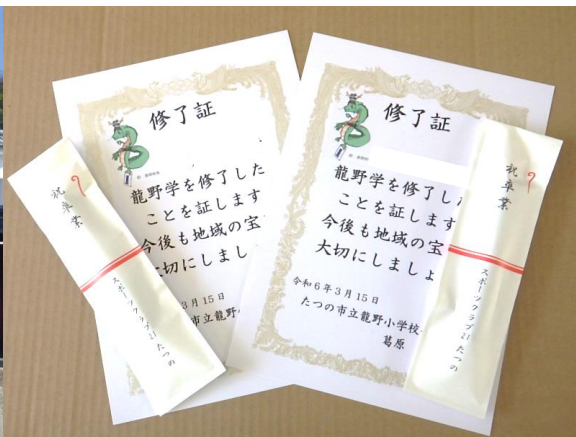 修了証
龍野学を修了した
ことを証します
今後も地域の宝
大切にしまし
3月15日
市立龍野
祝卒業
スポーツクラブ21たつの
修了証
龍野学を修了し
ことを証します
今後も地域の宝
大切にしましょ
令和6年3月15日
たつの市立龍野小学校
葛原
祝卒業
スポーツクラブ21たつの